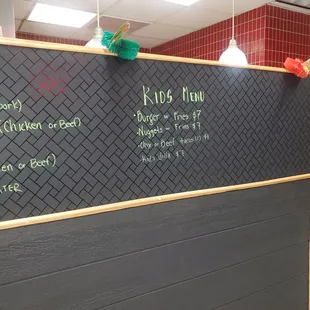 pork)
(Chicken or Beef)
en or Beef)
TER
Kids Menu
• Burger w Fries $7
• Nuggets w Fries $7
or Beef
• Kids